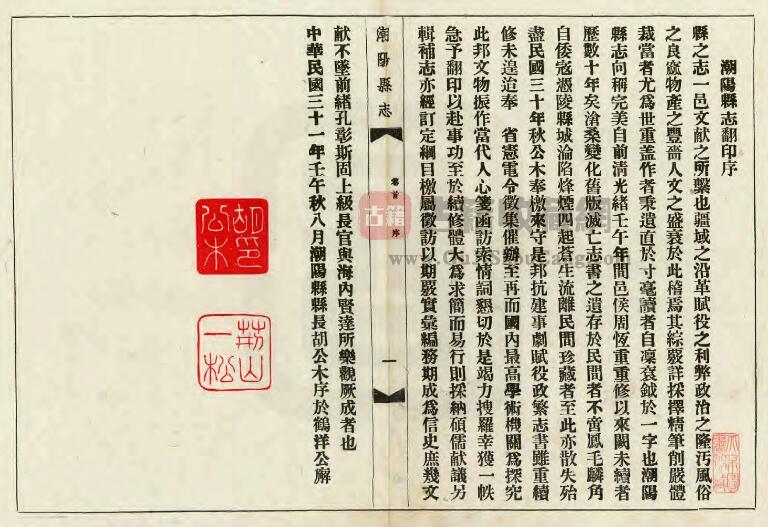 潮陽縣志翻印序
縣之志一邑文献之所繫也疆域之沿革賦役之利弊政治之隆汚風俗
之良窳物產之豐嗇人文之盛衰於此稽焉其綜覈詳採擇精筆削嚴體
裁當者尤爲世重蓋作者秉遺直於寸毫讀者自凜袞鉞於一字也潮陽
縣志向稱完美自前淸光緖壬午年間邑侯周恆重重修以來闕未續者
歷數十年矣滄桑變化舊版滅亡志書之遺存於民間者不啻鳳毛麟角
自倭寇憑陵縣城淪陷烽煙四起蒼生流離民間珍藏者至此亦散失殆
盡民國三十年秋公木奉檄來守是邦抗建事劇賦役政繁志書雖重續
修未遑迨奉　省憲電令徵集催辦至再而國內最高學術機關爲探究
此邦文物振作當代人心箋函訪索情詞懇切於是竭力搜羅幸獲一帙
急予翻印以赴事功至於續修體大爲求簡而易行則採納碩儒献議另
輯補志亦經訂定綱目檄屬徵訪以期覈實彙編務期成爲信史庶幾文
潮陽縣志
卷首 序
一
献不墜前緖孔彰斯固上級長官與海內賢達所樂觀厥成者也
中華民國三十一年壬午秋八月潮陽縣縣長胡公木序於鶴洋公廨
胡公木印
荊山一松
古籍
古籍收藏網